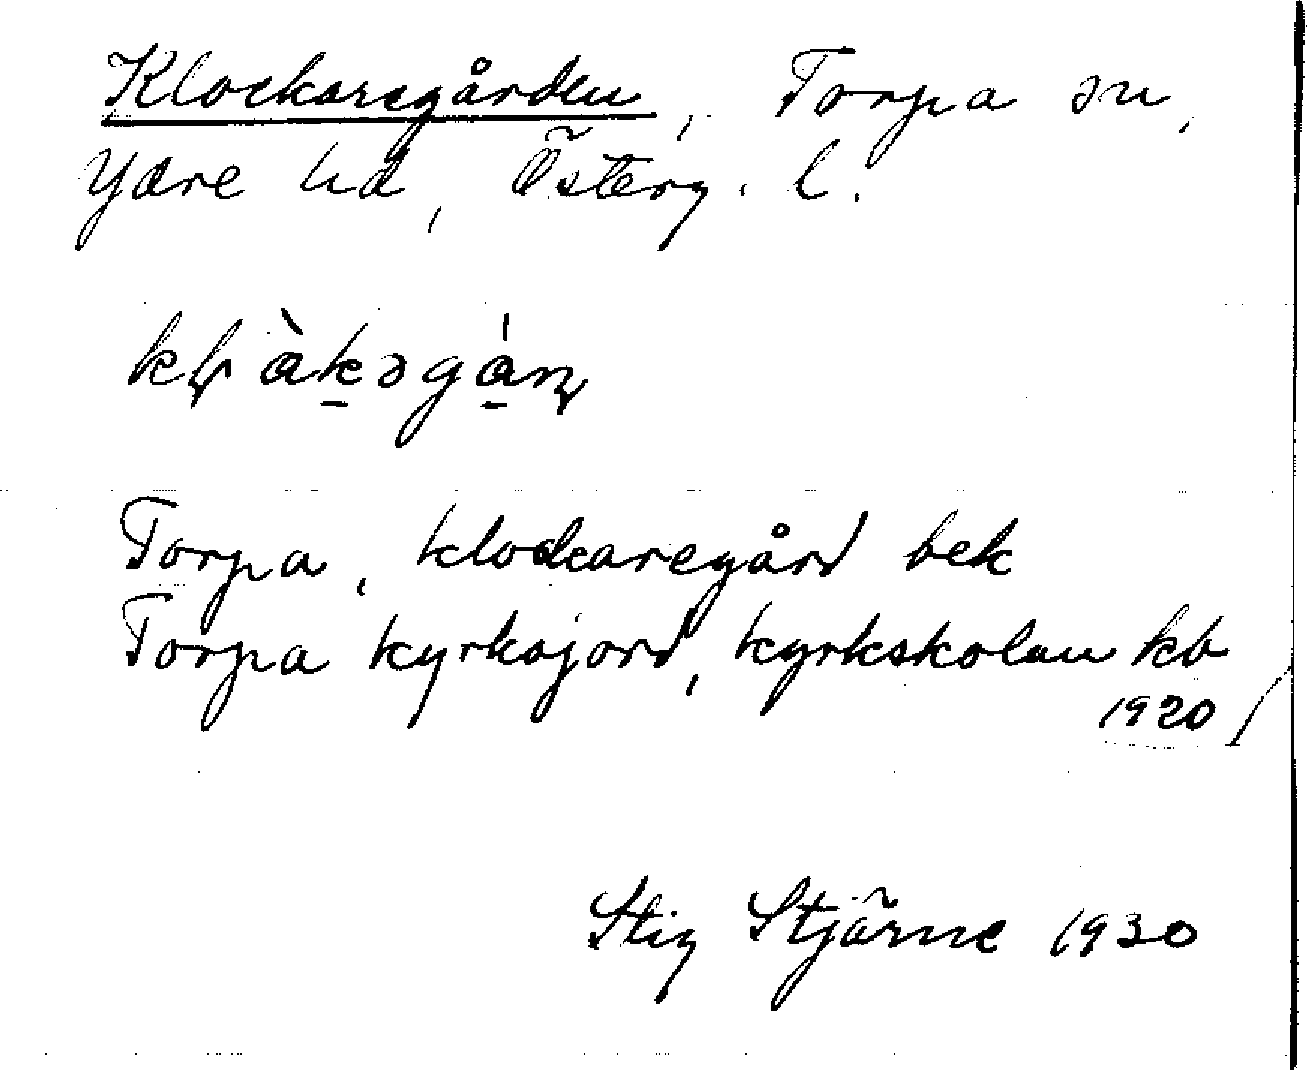 Klockaregården, Torpa sn,
Ydre hd, Österg. l.
Torpa, klockaregård bek
Torpa kyrkojord, kyrkskolan kb
1920
Stig Stjärne 1930